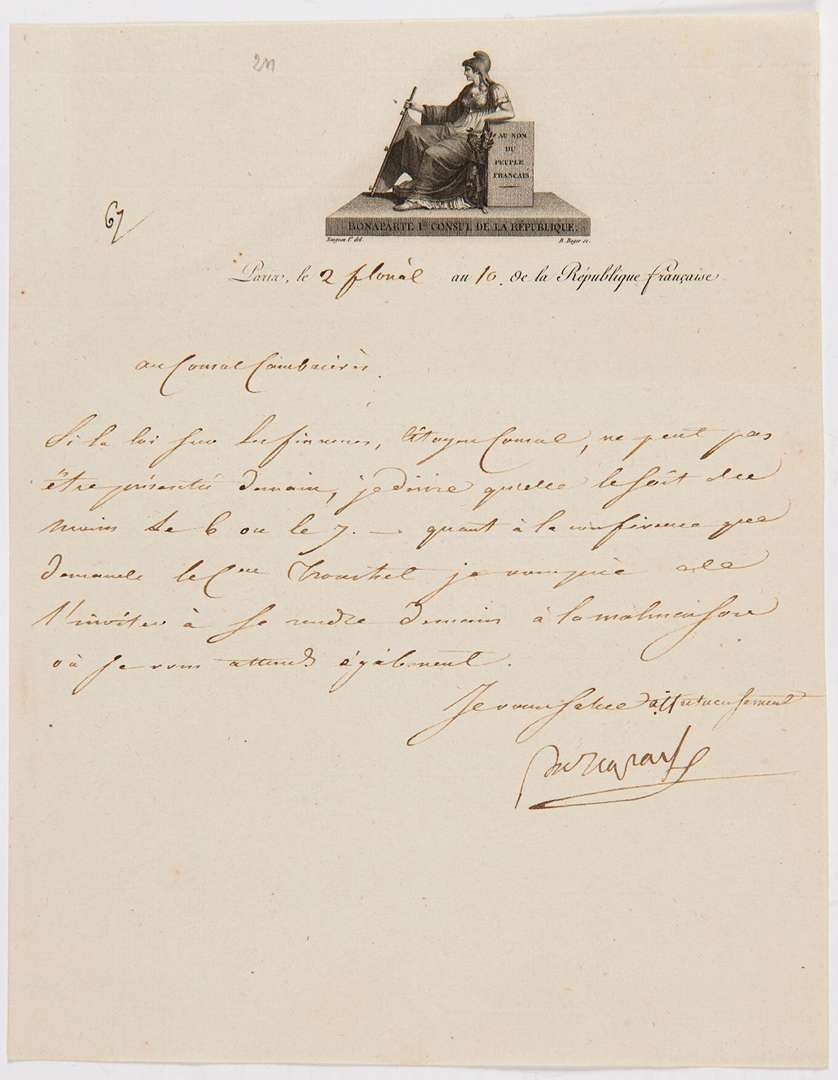 211
67
AU NOM
DU
PEUPLE
FRANÇAIS
BONAPARTE 1er CONSUL DE LA RÉPUBLIQUE.
B. Roger sc.
Paris, le 2 floréal an 10. de la République française
au Consul Cambacérès.
Si la loi sur les finances, Citoyen Consul, ne peut pas
être présentée demain, je désire qu'elle le soit du
moins le 6 ou le 7. — quant à la conférence que
demande le Cen Tronchet je vous prie de
l'inviter à se rendre demain à la malmaison
où je vous attends également.
Je vous salue affectueusement
Bonaparte